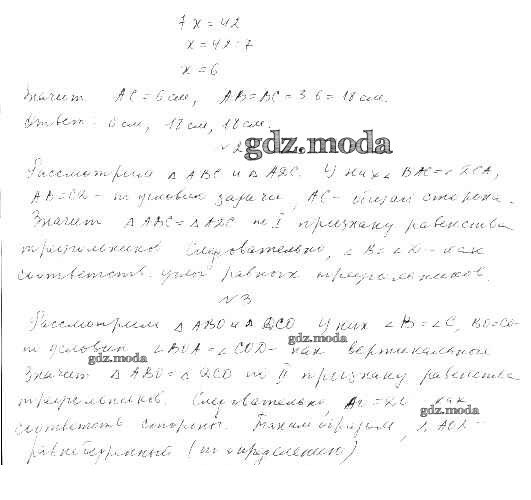 7x = 42
x = 42:7
x = 6
Значит AC = 6 см, AB = BC = 3·6 = 18 см.
Ответ: 6 см, 18 см, 18 см.
gdz.moda
№2
Рассмотрим △ABC и △ADC. У них ∠BAC = ∠DCA,
AB = CD - по условию задачи, AC - общая сторона.
Значит △ABC = △ADC по I признаку равенства
треугольников. Следовательно, ∠B = ∠D - как
соответств. углы равных треугольников.
№3
Рассмотрим △ABO и △DCO. У них ∠B = ∠C, BO = CO -
gdz.moda
по условию ∠BOA = ∠COD - как вертикальные
gdz.moda
Значит △ABO = △DCO по II признаку равенства
треугольников. Следовательно, как
gdz.moda
соответств. стороны. Таким образом, △AOD -
равнобедренный (по определению)